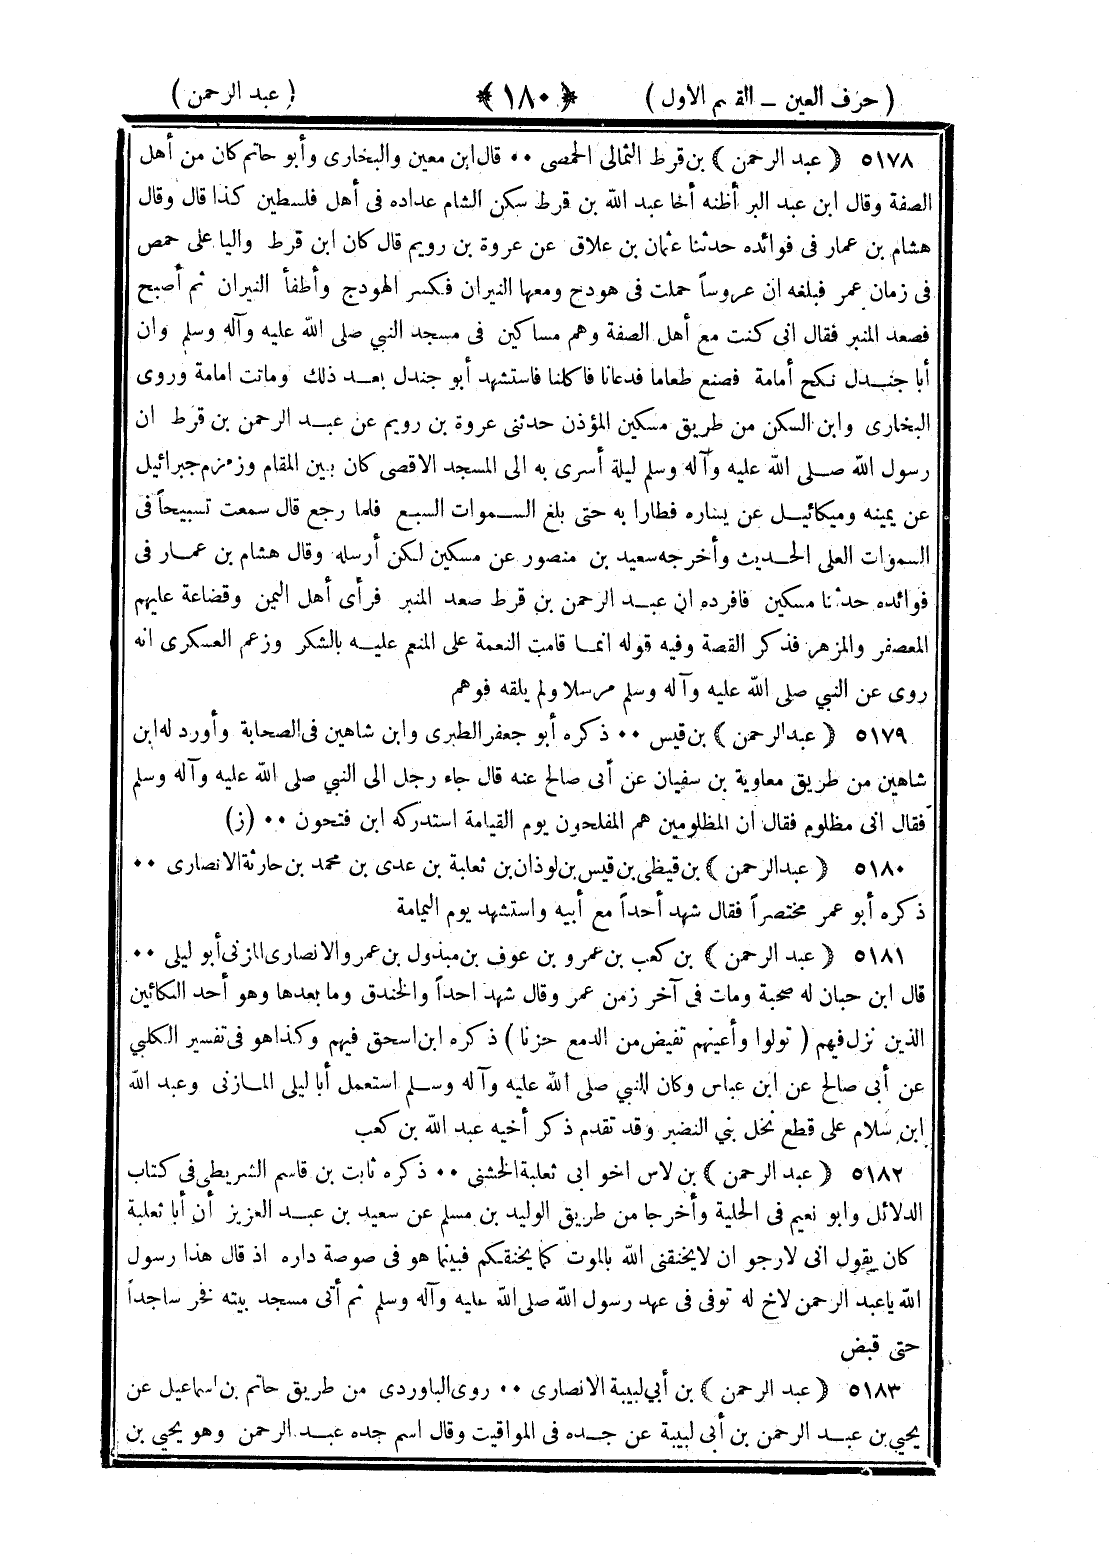 ( حرف العين ــ القسم الاول ) ﴿ ١٨٠ ﴾ ( عبد الرحمن )
٥١٧٨ ﴿ عبد الرحمن ﴾ بن قرط الثمالى الحمصى ٠٠ قال ابن معين والبخارى وأبو حاتم كان من أهل
الصفة وقال ابن عبد البر أظنه أخا عبد الله بن قرط سكن الشام عداده فى أهل فلسطين كذا قال وقال
هشام بن عمار فى فوائده حدثنا عثمان بن علاق عن عروة بن رويم قال كان ابن قرط واليا على حمص
فى زمان عمر فبلغه ان عروساً حملت فى هودج ومعها النيران فكسر الهودج وأطفأ النيران ثم أصبح
فصعد المنبر فقال انى كنت مع أهل الصفة وهم مساكين فى مسجد النبي صلى الله عليه وآله وسلم وان
أبا جندل نكح أمامة فصنع طعاما فدعانا فاكلنا فاستشهد أبو جندل بعد ذلك وماتت امامة وروى
البخارى وابن السكن من طريق مسكين المؤذن حدثنى عروة بن رويم عن عبد الرحمن بن قرط ان
رسول الله صلى الله عليه وآله وسلم ليلة أسرى به الى المسجد الاقصى كان بين المقام وزمزم جبرائيل
عن يمينه وميكائيل عن يساره فطارا به حتى بلغ السموات السبع فلما رجع قال سمعت تسبيحاً فى
السموات العلى الحديث وأخرجه سعيد بن منصور عن مسكين لكن أرسله وقال هشام بن عمار فى
فوائده حدثنا مسكين فافرده ان عبد الرحمن بن قرط صعد المنبر فرأى أهل اليمن وقضاعة عليهم
المعصفر والمزهر فذكر القصة وفيه قوله انما قامت النعمة على المنعم عليه بالشكر وزعم العسكرى انه
روى عن النبي صلى الله عليه وآله وسلم مرسلا ولم يلقه فوهم
٥١٧٩ ﴿ عبد الرحمن ﴾ بن قيس ٠٠ ذكره أبو جعفر الطبرى وابن شاهين فى الصحابة وأورد له ابن
شاهين من طريق معاوية بن سفيان عن أبى صالح عنه قال جاء رجل الى النبي صلى الله عليه وآله وسلم
فقال انى مظلوم فقال ان المظلومين هم المفلحون يوم القيامة استدركه ابن فتحون ٠٠ (ز)
٥١٨٠ ﴿ عبد الرحمن ﴾ بن قيظى بن قيس بن لوذان بن ثعلبة بن عدى بن محمد بن حارثة الانصارى ٠٠
ذكره أبو عمر مختصراً فقال شهد أحداً مع أبيه واستشهد يوم اليمامة
٥١٨١ ﴿ عبد الرحمن ﴾ بن كعب بن عمرو بن عوف بن مبذول بن عمرو الانصارى المازنى أبو ليلى ٠٠
قال ابن حبان له صحبة ومات فى آخر زمن عمر وقال شهد احداً والخندق وما بعدها وهو أحد البكائين
الذين نزل فيهم ( تولوا وأعينهم تفيض من الدمع حزنا ) ذكره ابن اسحق فيهم وكذا هو فى تفسير الكلبي
عن أبى صالح عن ابن عباس وكان النبي صلى الله عليه وآله وسلم استعمل أبا ليلى المازنى وعبد الله
ابن سلام على قطع نخل بني النضير وقد تقدم ذكر أخيه عبد الله بن كعب
٥١٨٢ ﴿ عبد الرحمن ﴾ بن لاس اخو ابى ثعلبة الخشنى ٠٠ ذكره ثابت بن قاسم الشريطى فى كتاب
الدلائل وابو نعيم فى الحلية وأخرجا من طريق الوليد بن مسلم عن سعيد بن عبد العزيز أن أبا ثعلبة
كان يقول انى لارجو ان لا يخنقنى الله بالموت كما يخنقكم فبينما هو فى صوصة داره اذ قال هذا رسول
الله يا عبد الرحمن لاخ له توفى فى عهد رسول الله صلى الله عليه وآله وسلم ثم أتى مسجد بيته فخر ساجداً
حتى قبض
٥١٨٣ ﴿ عبد الرحمن ﴾ بن أبي لبيبة الانصارى ٠٠ روى الباوردى من طريق حاتم بن اسماعيل عن
يحيي بن عبد الرحمن بن أبى لبيبة عن جده فى المواقيت وقال اسم جده عبد الرحمن وهو يحيي بن